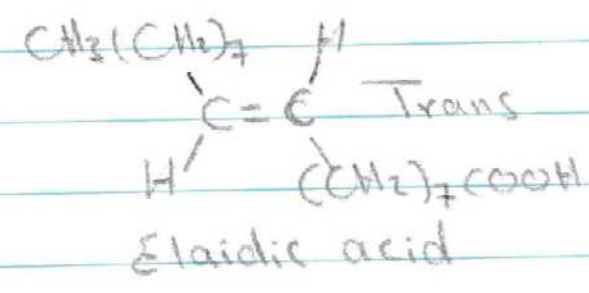 CH3(CH2)7 H
C=C Trans
H (CH2)7COOH
Elaidic acid